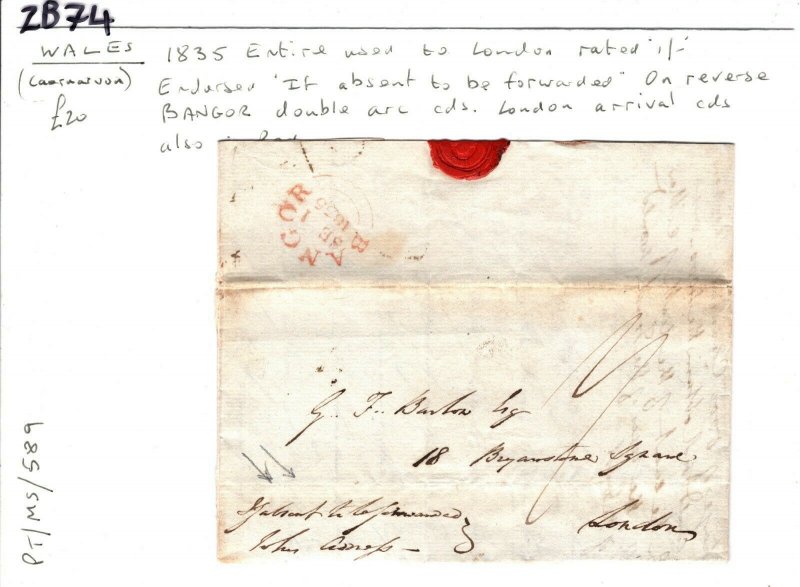 ZB74
WALES
(Caernarvon)
£20
1835 Entire used to London rated "1/-"
Endorsed "If absent to be forwarded" On reverse
BANGOR double arc cds. London arrival cds
also in Red
BANGOR
SE 1
1835
G. F. Barlow Esq
18 Bryanstone Square
London
If absent to be forwarded
John
PT/MS/589